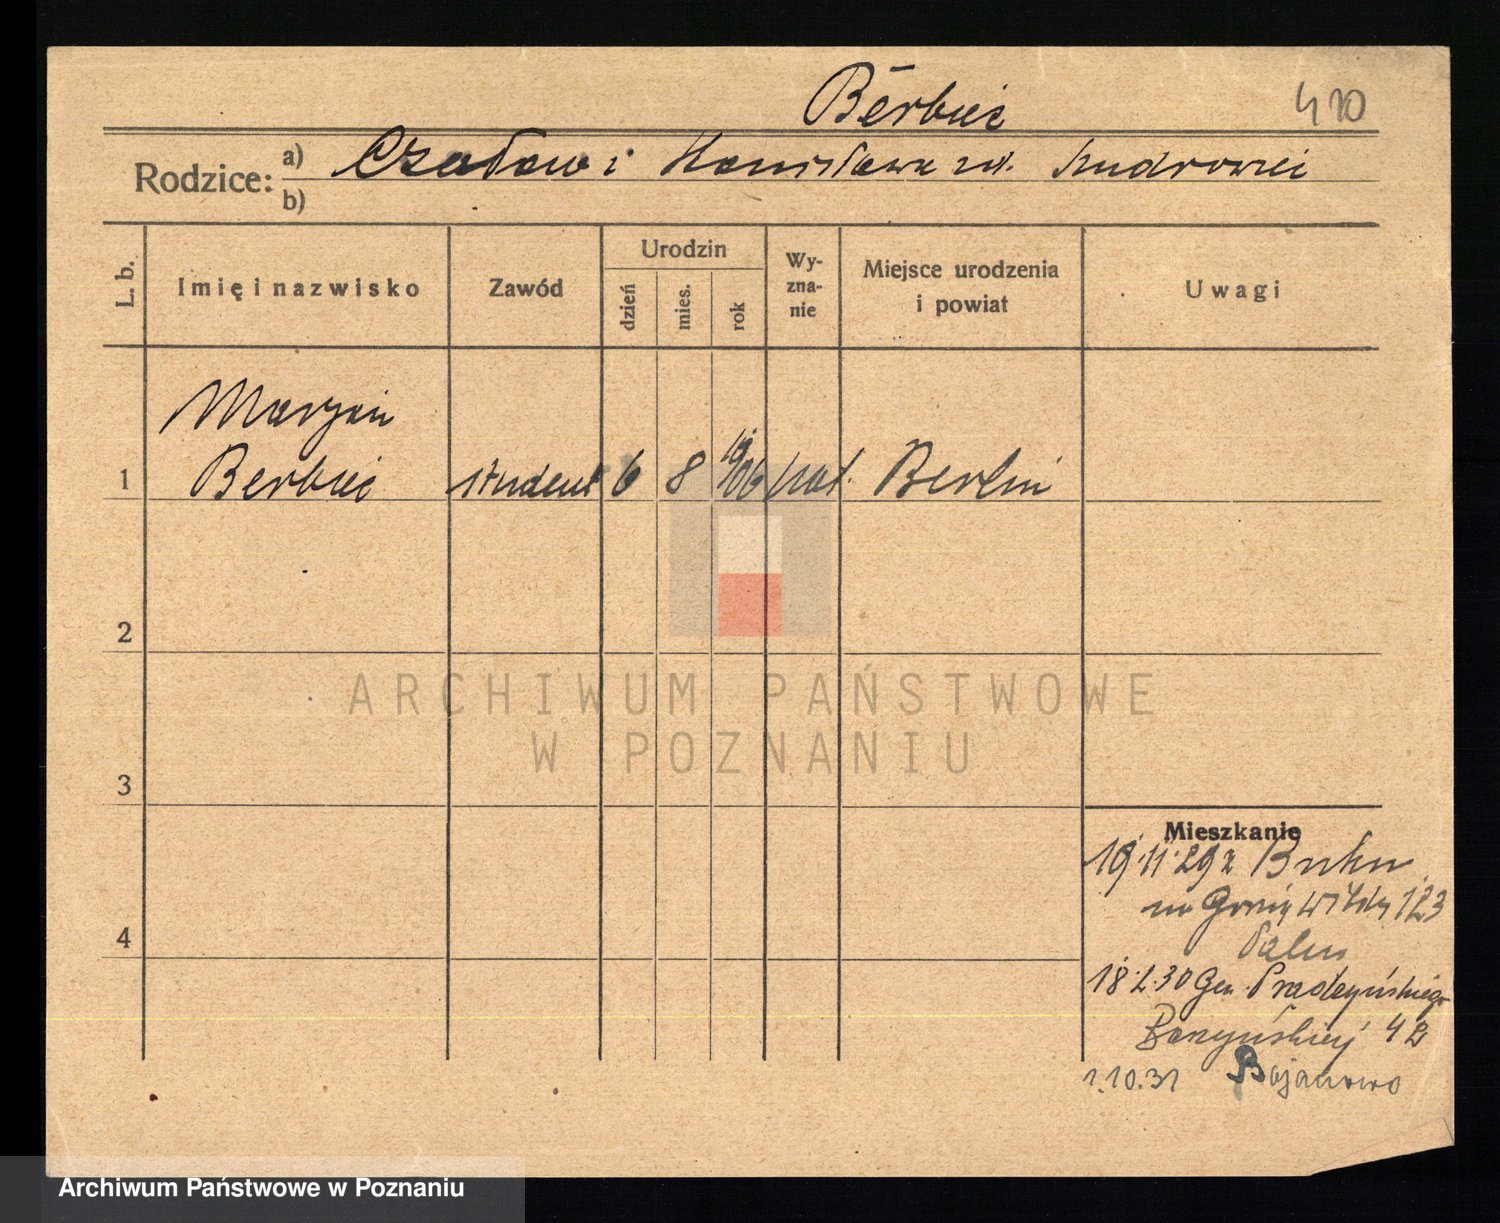 Berbeć
410
Rodzice: a) Czesław i Stanisława zd.
b)
L. b.
Imię i nazwisko
Zawód
Urodzin
dzień
mies.
rok
Wy-
zna-
nie
Miejsce urodzenia
i powiat
Uwagi
Maryan
1 Berbeć student 6 8 1906 kat. Berlin
2
3
4
Mieszkanie
19.11.29 z Buku
na Górną Wildę 123
18.2.30 Gen. Prądzyńskiego
1.10.31 Bojanowo
ARCHIWUM PAŃSTWOWE
W POZNANIU
Archiwum Państwowe w Poznaniu